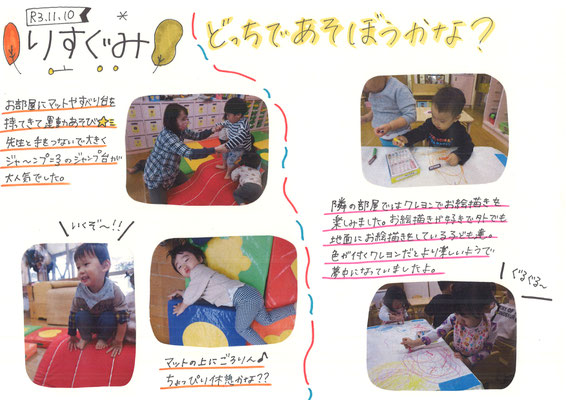 R3.11.10
りすぐみ
どっちであそぼうかな？
お部屋にマットやすべり台を
持ってきて運動あそび☆=
先生と手をつないで大きく
ジャ〜ンプ=3のジャンプ台が
大人気でした。
いくぞ〜!!
マットの上にごろりん♪
ちょっぴり休憩かな??
隣の部屋ではクレヨンでお絵描きを
楽しみました。お絵描きが好きで外でも
地面にお絵描きをしている子ども達。
色が付くクレヨンだとより楽しいようで
夢中になっていましたよ。
ぐるぐる〜